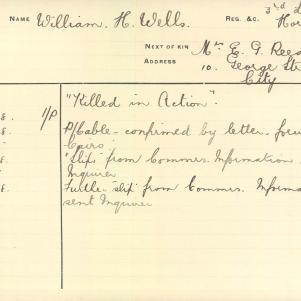 NAME William. H. Wells. REG. &C. 3rd L
Hor
NEXT OF KIN Mr E. G. Rees
ADDRESS 10. George Str
City
"Killed in Action"
1/P P/Cable - confirmed by letter. for
Cairo
"Slip" from Commrs. Information.
Inquirer
Further "slip" from Commrs. Informa
sent Inquirer